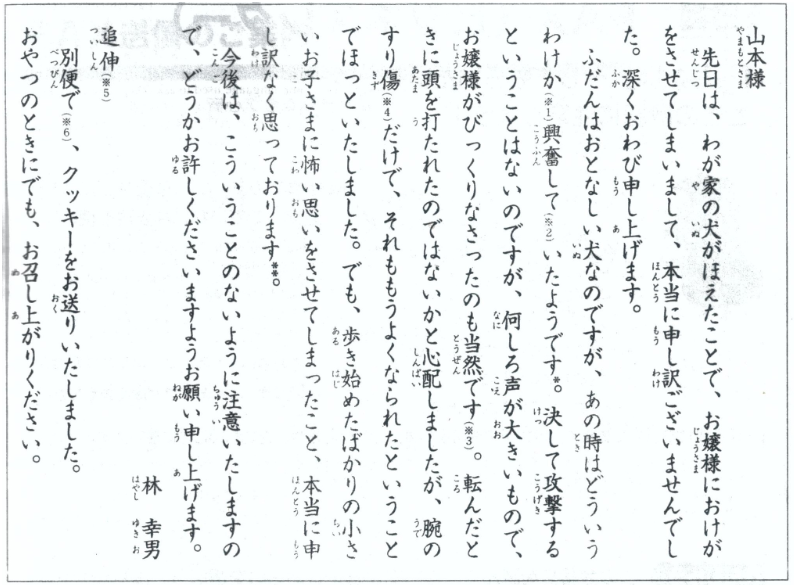 山本様
先日は、わが家の犬がほえたことで、お嬢様におけが
をさせてしまいまして、本当に申し訳ございませんでし
た。深くおわび申し上げます。
ふだんはおとなしい犬なのですが、あの時はどういう
わけか(※1)興奮して(※2)いたようです*。決して攻撃する
ということはないのですが、何しろ声が大きいもので、
お嬢様がびっくりなさったのも当然です(※3)。転んだと
きに頭を打たれたのではないかと心配しましたが、腕の
すり傷(※4)だけで、それももうよくなられたということ
でほっといたしました。でも、歩き始めたばかりの小さ
いお子さまに怖い思いをさせてしまったこと、本当に申
し訳なく思っております**。
今後は、こういうことのないように注意いたしますの
で、どうかお許しくださいますようお願い申し上げます。
林 幸男
追伸(※5)
別便で(※6)、クッキーをお送りいたしました。
おやつのときにでも、お召し上がりください。